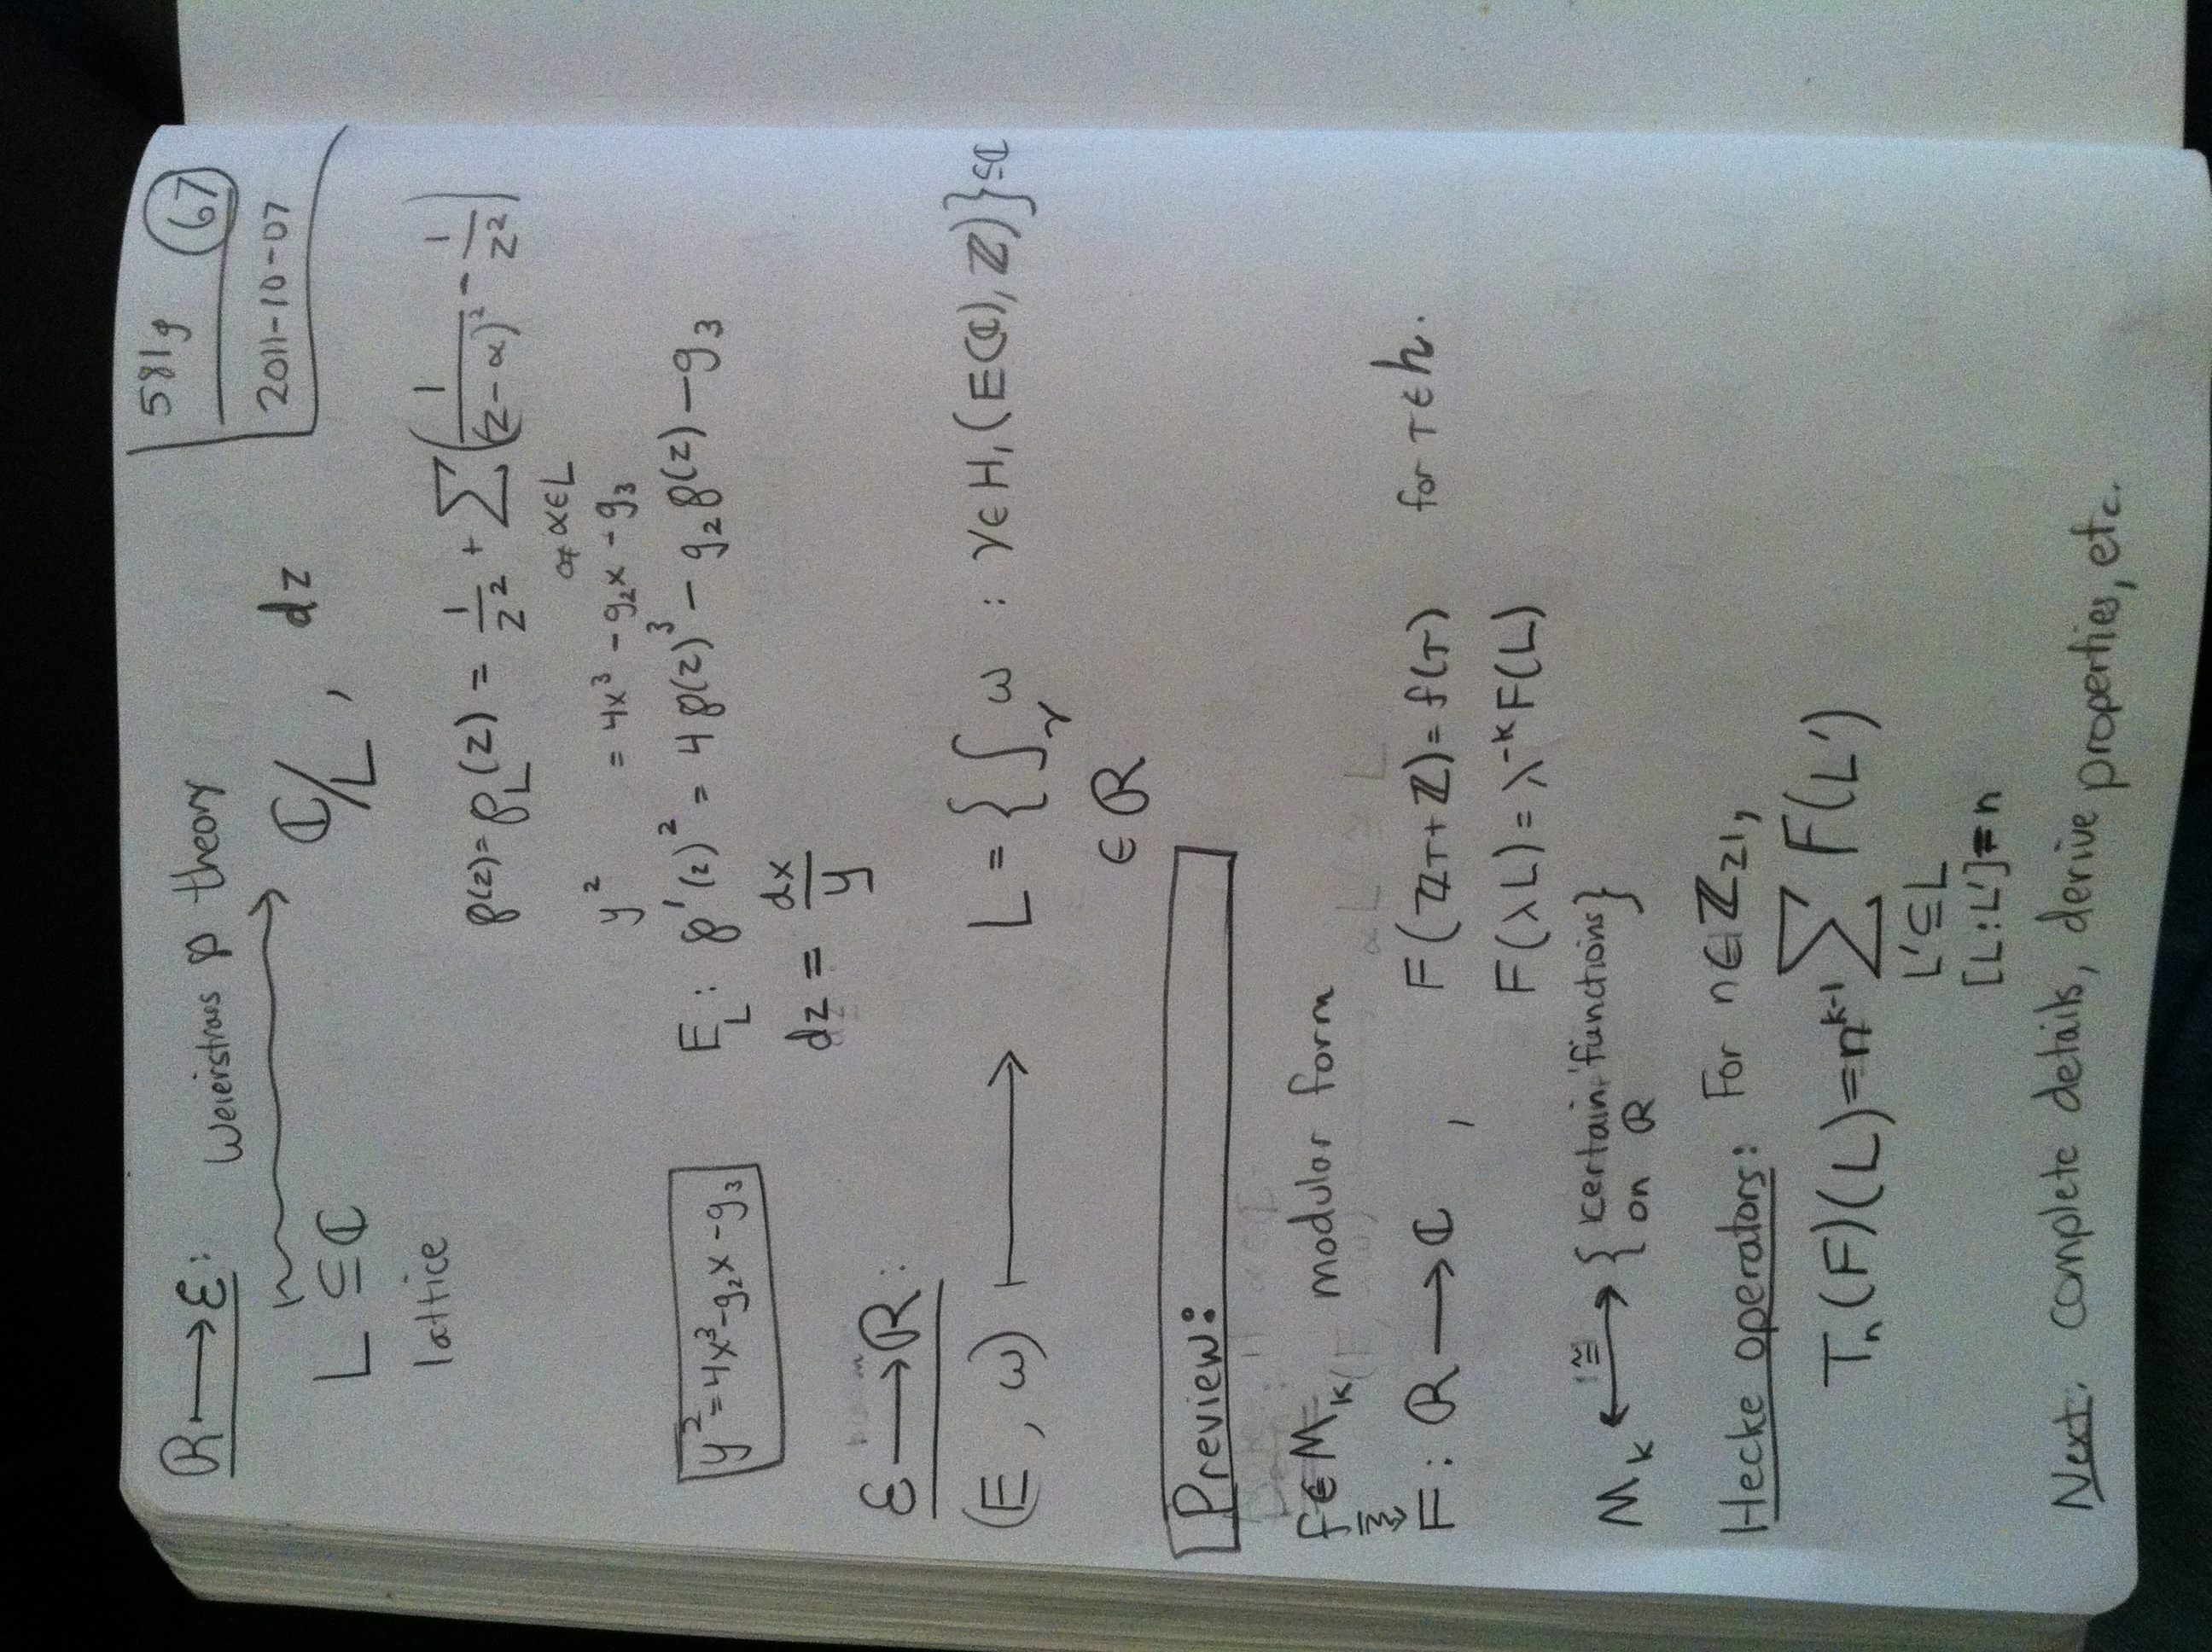 581g 67
2011-10-07
R → ℰ: Weierstrass ℘ theory
L ⊆ ℂ ⇝ ℂ/L, dz
lattice
℘(z) = ℘_L(z) = 1/z² + Σ_{0≠α∈L} (1/(z-α)² - 1/z²)
y² = 4x³ - g₂x - g₃
y² = 4x³ - g₂x - g₃ E_L: ℘'(z)² = 4℘(z)³ - g₂℘(z) - g₃
dz = dx/y
ℰ → R:
(E, ω) ↦ L = {∫_γ ω : γ ∈ H₁(E(ℂ), ℤ)} ⊆ ℂ
∈ R
Preview:
f ∈ M_k modular form
F: R → ℂ, F(ℤτ + ℤ) = f(τ) for τ ∈ h.
F(λL) = λ^{-k} F(L)
M_k ≅ ↔ {certain functions on R}
Hecke operators: For n ∈ ℤ_{≥1},
T_n(F)(L) = n^{k-1} Σ_{L'⊆L [L:L']=n} F(L')
Next. complete details, derive properties, etc.